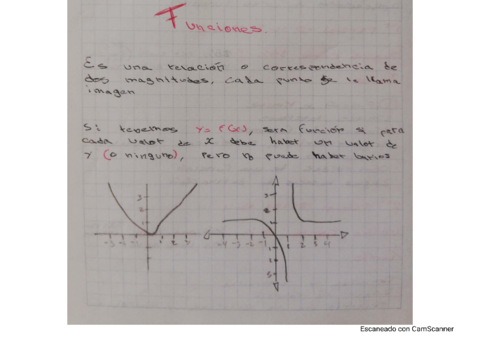 Funciones.
Es una relación o correspondencia de
dos magnitudes, cada punto se le llama
imagen
Si tenemos y=f(x), sera función si para
cada valor de x debe haber un valor de
y (o ninguno), pero no puede haber varios
-3 -2 -1 1 2 3
-4 -3 -2 -1 1 2 3 4
Escaneado con CamScanner